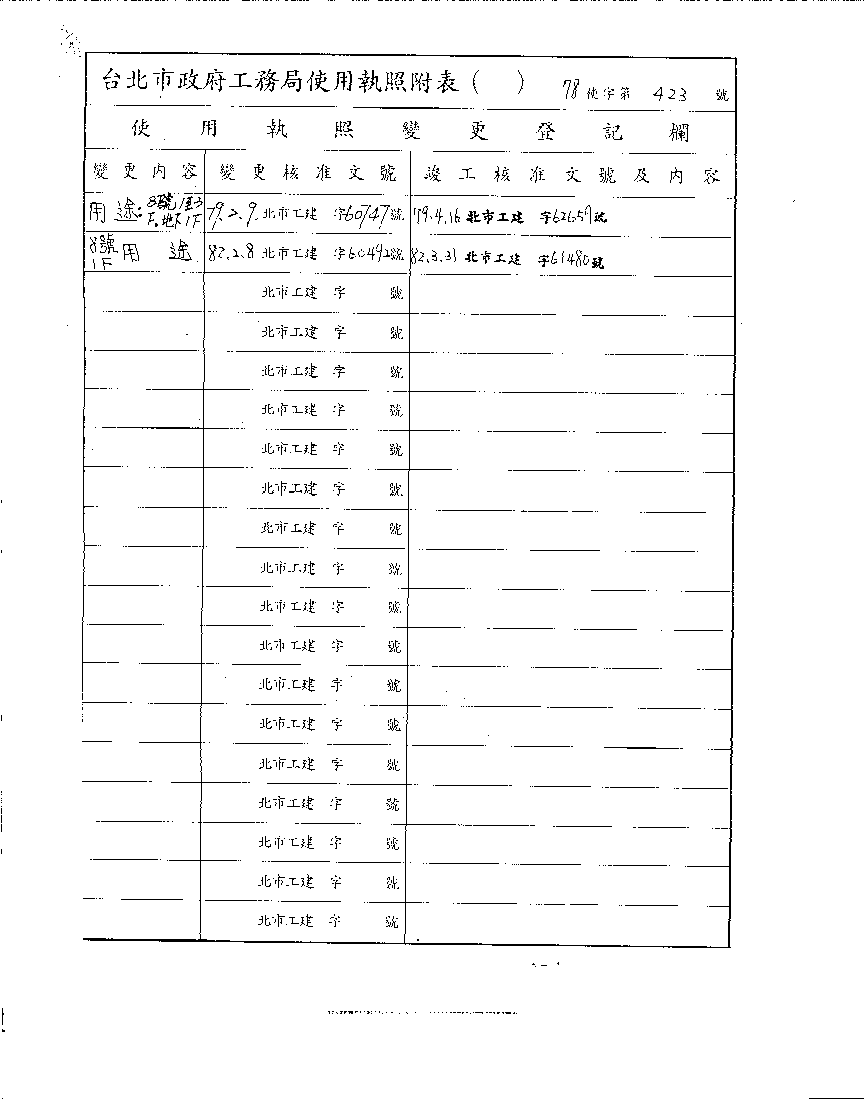 台北市政府工務局使用執照附表（　） 78使字第 423 號
使用執照變更登記欄
變更內容 變更核准文號 竣工核准文號及內容
用途: 8號 F.地下1F 79.2.9.北市工建 字60747號 79.4.16 北市工建 字62657號
8號1F 用途 82.2.8 北市工建 字60492號 82.3.31 北市工建 字61480號
北市工建 字 號
北市工建 字 號
北市工建 字 號
北市工建 字 號
北市工建 字 號
北市工建 字 號
北市工建 字 號
北市工建 字 號
北市工建 字 號
北市工建 字 號
北市工建 字 號
北市工建 字 號
北市工建 字 號
北市工建 字 號
北市工建 字 號
北市工建 字 號
北市工建 字 號